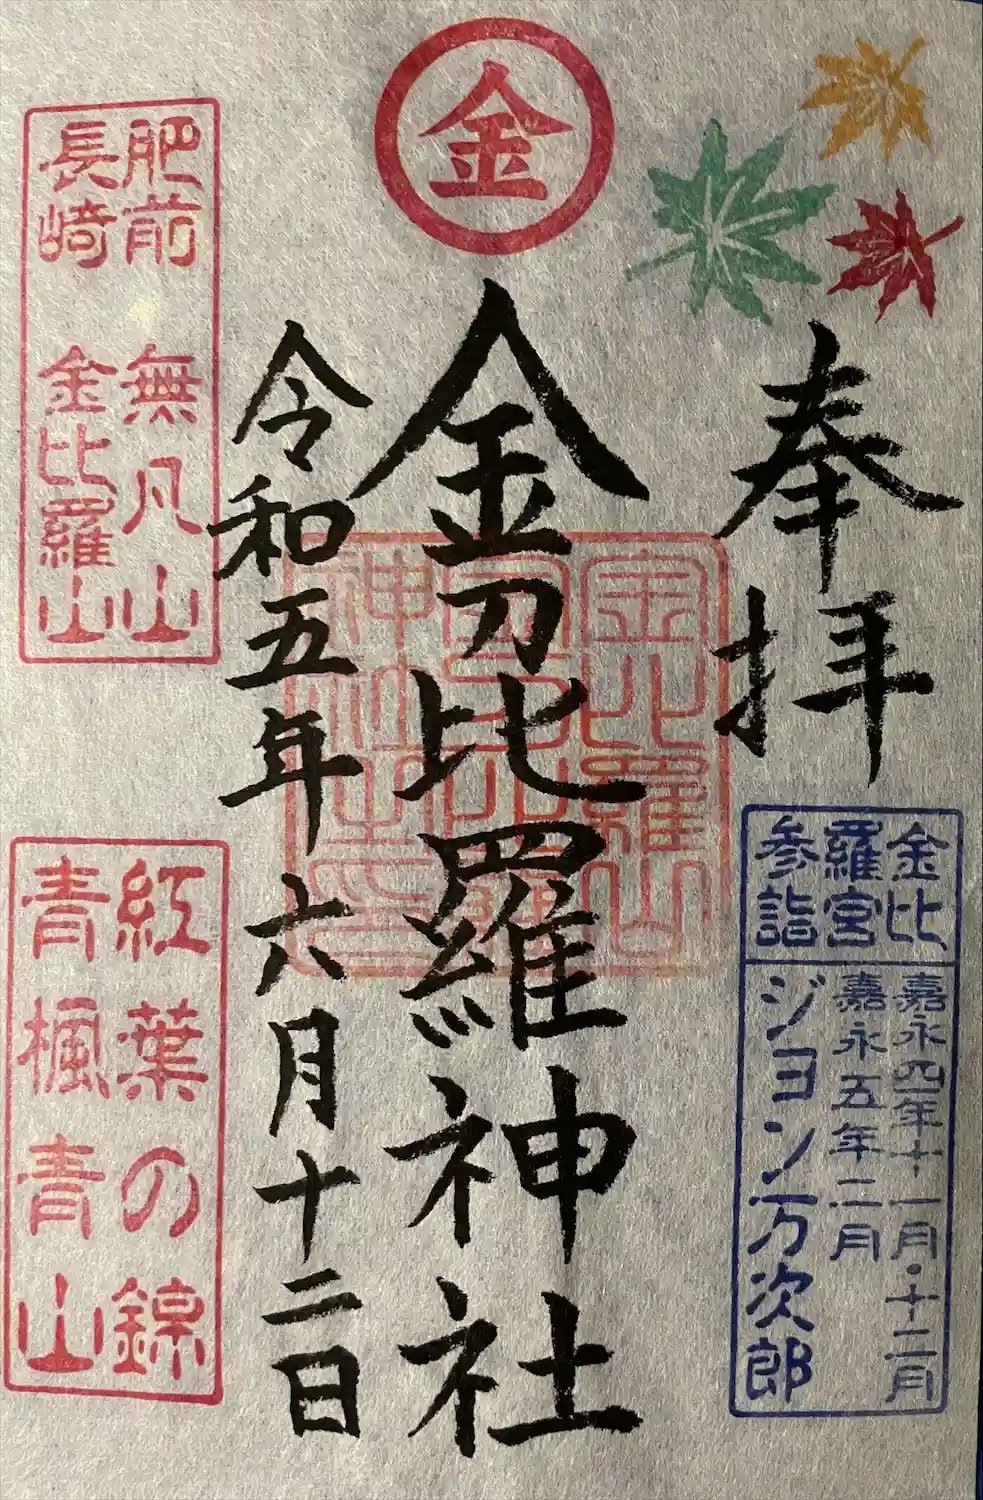 金
奉拝
金比
羅宮
参詣
嘉永四年十一月・十二月
嘉永五年二月
ジョン万次郎
金刀比羅神社
令和五年六月十二日
肥前 無凡山
長崎 金比羅山
紅葉の錦
青楓青山